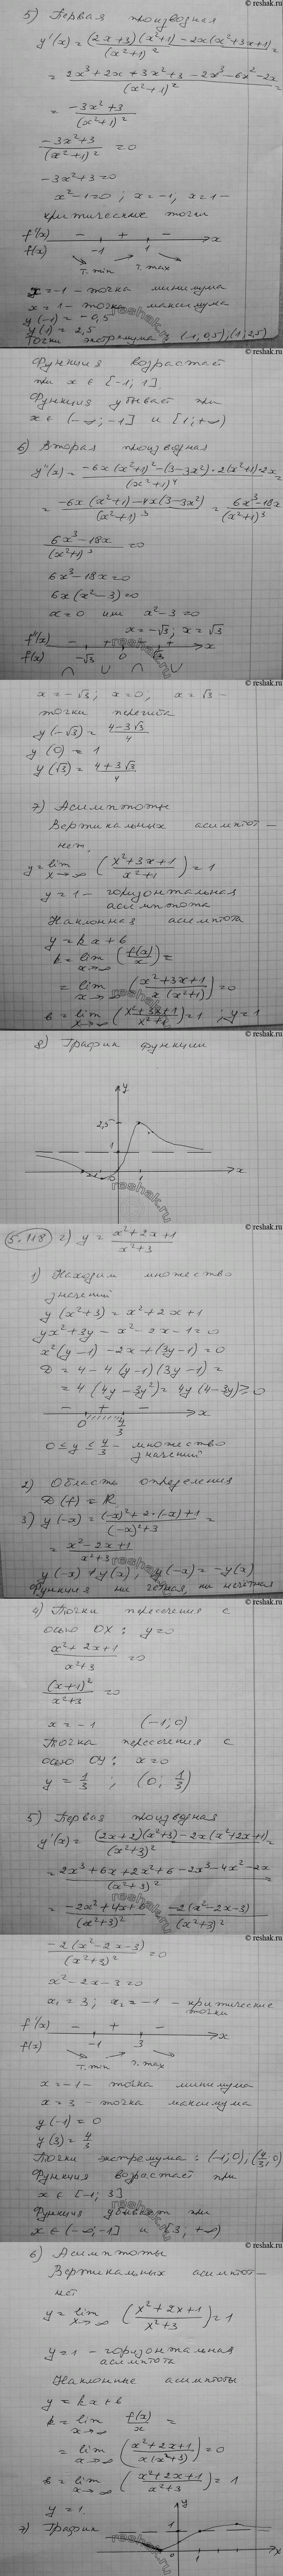 5) Первая производная
y'(x) = (2x+3)(x²+1) - 2x(x²+3x+1) / (x²+1)² =
= 2x³+2x+3x²+3-2x³-6x²-2x / (x²+1)² =
= -3x²+3 / (x²+1)²
-3x²+3 / (x²+1)² = 0
-3x²+3=0
x²-1=0; x=-1, x=1 -
критические точки
f'(x) - + -
f(x) -1 1 x
т. min т. max
x=-1 - точка минимума
x=1 - точка максимума
y(-1) = -0,5
y(1) = 2,5
Точки экстремума: (-1; 0,5); (1; 2,5)
Функция возрастает
при x ∈ [-1; 1]
Функция убывает при
x ∈ (-∞; -1] и [1; +∞)
6) Вторая производная
y''(x) = -6x(x²+1)² - (3-3x²)·2(x²+1)·2x / (x²+1)⁴ =
= -6x(x²+1) - 4x(3-3x²) / (x²+1)³ = 6x³-18x / (x²+1)³
6x³-18x / (x²+1)³ = 0
6x³-18x=0
6x(x²-3)=0
x=0 или x²-3=0
x=-√3; x=√3
f''(x) - + - +
f(x) -√3 0 √3 x
∩ ∪ ∩ ∪
x=-√3; x=0, x=√3 -
точки перегиба
y(-√3) = 4-3√3 / 4
y(0) = 1
y(√3) = 4+3√3 / 4
7) Асимптоты
Вертикальных асимптот -
нет.
y = lim x→∞ (x²+3x+1 / x²+1) = 1
y=1 - горизонтальная
асимптота
Наклонная асимптота
y = kx+b
k = lim x→∞ (f(x)/x) =
= lim x→∞ (x²+3x+1 / x(x²+1)) = 0
b = lim x→∞ (x²+3x+1 / x²+1) = 1; y=1
8) График функции
y
2,5
1
1 x
5.118 2) y = x²+2x+1 / x²+3
1) Находим множество
значений
y(x²+3) = x²+2x+1
yx²+3y-x²-2x-1=0
x²(y-1)-2x+(3y-1)=0
D = 4-4(y-1)(3y-1) =
= 4(4y-3y²) = 4y(4-3y) ≥ 0
- + -
0 4/3 x
0 ≤ y ≤ 4/3 - множество
значений
2) Область определения
D(f) = R
3) y(-x) = (-x)²+2·(-x)+1 / (-x)²+3 =
= x²-2x+1 / x²+3
y(-x) ≠ y(x), y(-x) = -y(x)
Функция ни четная, ни нечетная
4) Точки пересечения с
осью OX: y=0
x²+2x+1 / x²+3 = 0
(x+1)² / x²+3 = 0
x=-1 (-1; 0)
Точка пересечения с
осью OY: x=0
y = 1/3; (0; 1/3)
5) Первая производная
y'(x) = (2x+2)(x²+3) - 2x(x²+2x+1) / (x²+3)² =
= 2x³+6x+2x²+6-2x³-4x²-2x / (x²+3)² =
= -2x²+4x+6 / (x²+3)² = -2(x²-2x-3) / (x²+3)²
-2(x²-2x-3) / (x²+3)² = 0
x²-2x-3=0
x₁=3; x₂=-1 - критические
точки
f'(x) - + -
f(x) -1 3 x
т. min т. max
x=-1 - точка минимума
x=3 - точка максимума
y(-1) = 0
y(3) = 4/3
Точки экстремума: (-1; 0); (4/3; 0)
Функция возрастает при
x ∈ [-1; 3]
Функция убывает при
x ∈ (-∞; -1] и [3; +∞)
6) Асимптоты
Вертикальных асимптот -
нет
y = lim x→∞ (x²+2x+1 / x²+3) = 1
y=1 - горизонтальная
асимптота
Наклонные асимптоты
y = kx+b
k = lim x→∞ f(x)/x =
= lim x→∞ (x²+2x+1 / x(x²+3)) = 0
b = lim x→∞ (x²+2x+1 / x²+3) = 1
y=1.
7) График
y
1
0 1 x
© reshak.ru